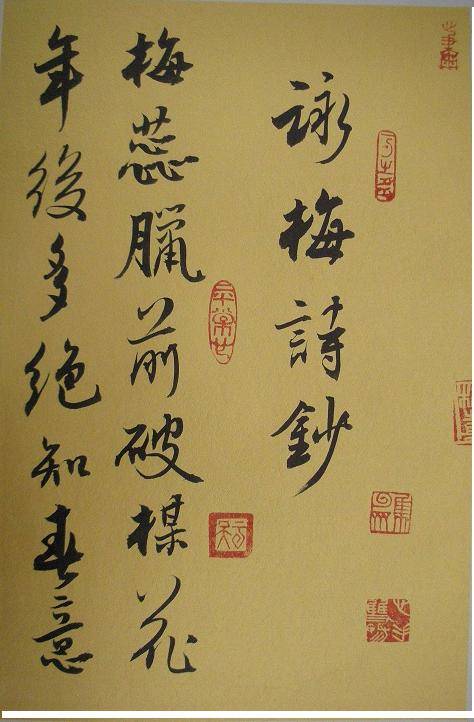 詠梅詩鈔
梅蕊臘前破楳花
年後多絕知春意